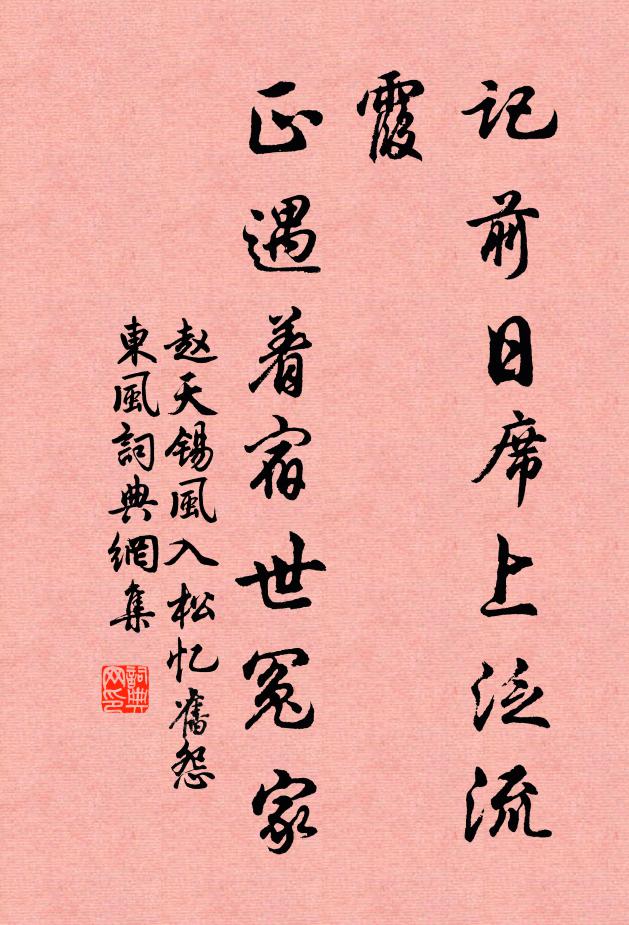 记前日席上泛流
霞
正遇着宿世冤家
赵天锡風入松忆舊怨
東風詞典網集
詞典网印